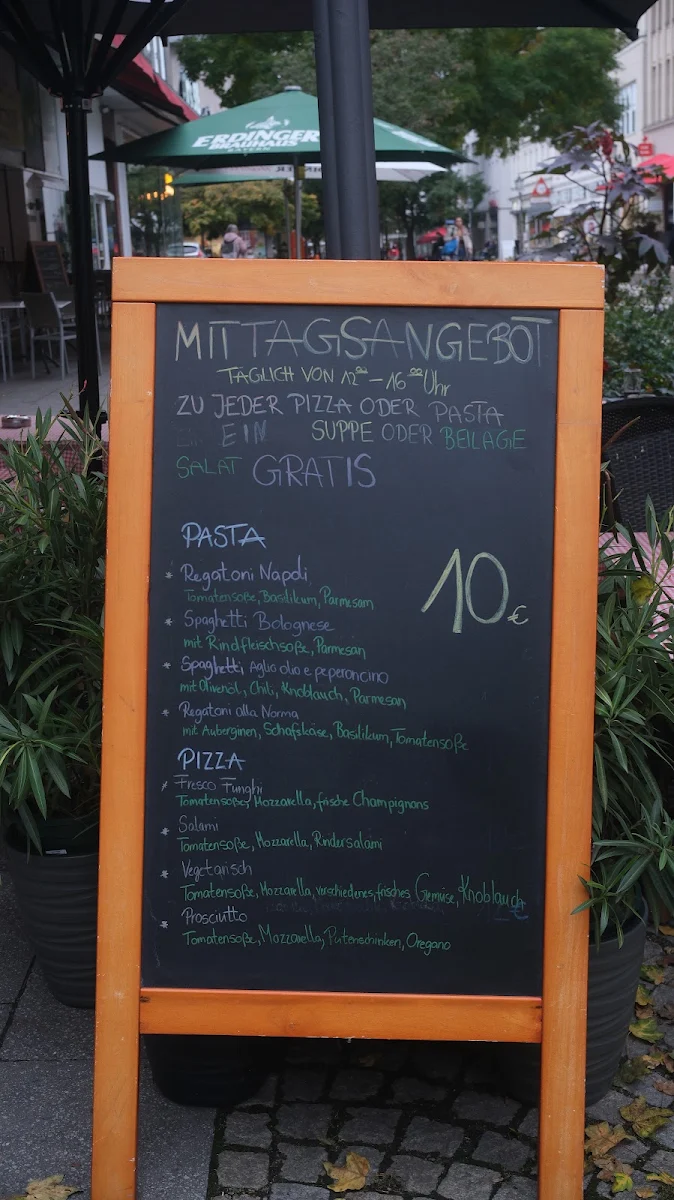 ERDINGER
BRAUHAUS
MITTAGSANGEBOT
TÄGLICH VON 12⁰⁰ – 16⁰⁰ Uhr
ZU JEDER PIZZA ODER PASTA
EIN SUPPE ODER BEILAGE
SALAT GRATIS
PASTA
* Regatoni Napoli
Tomatensoße, Basilikum, Parmesam
10€
* Spaghetti Bolognese
mit Rindfleischsoße, Parmesan
* Spaghetti Aglio olio e peperoncino
mit Olivenöl, Chili, Knoblauch, Parmesan
* Regatoni alla Norma
mit Auberginen, Schafskäse, Basilikum, Tomatensoße
PIZZA
* Fresco Funghi
Tomatensoße, Mozzarella, frische Champignons
* Salami
Tomatensoße, Mozzarella, Rindersalami
* Vegetarisch
Tomatensoße, Mozzarella, verschiedenes, frisches Gemüse, Knoblauch
* Prosciutto
Tomatensoße, Mozzarella, Putenschinken, Oregano